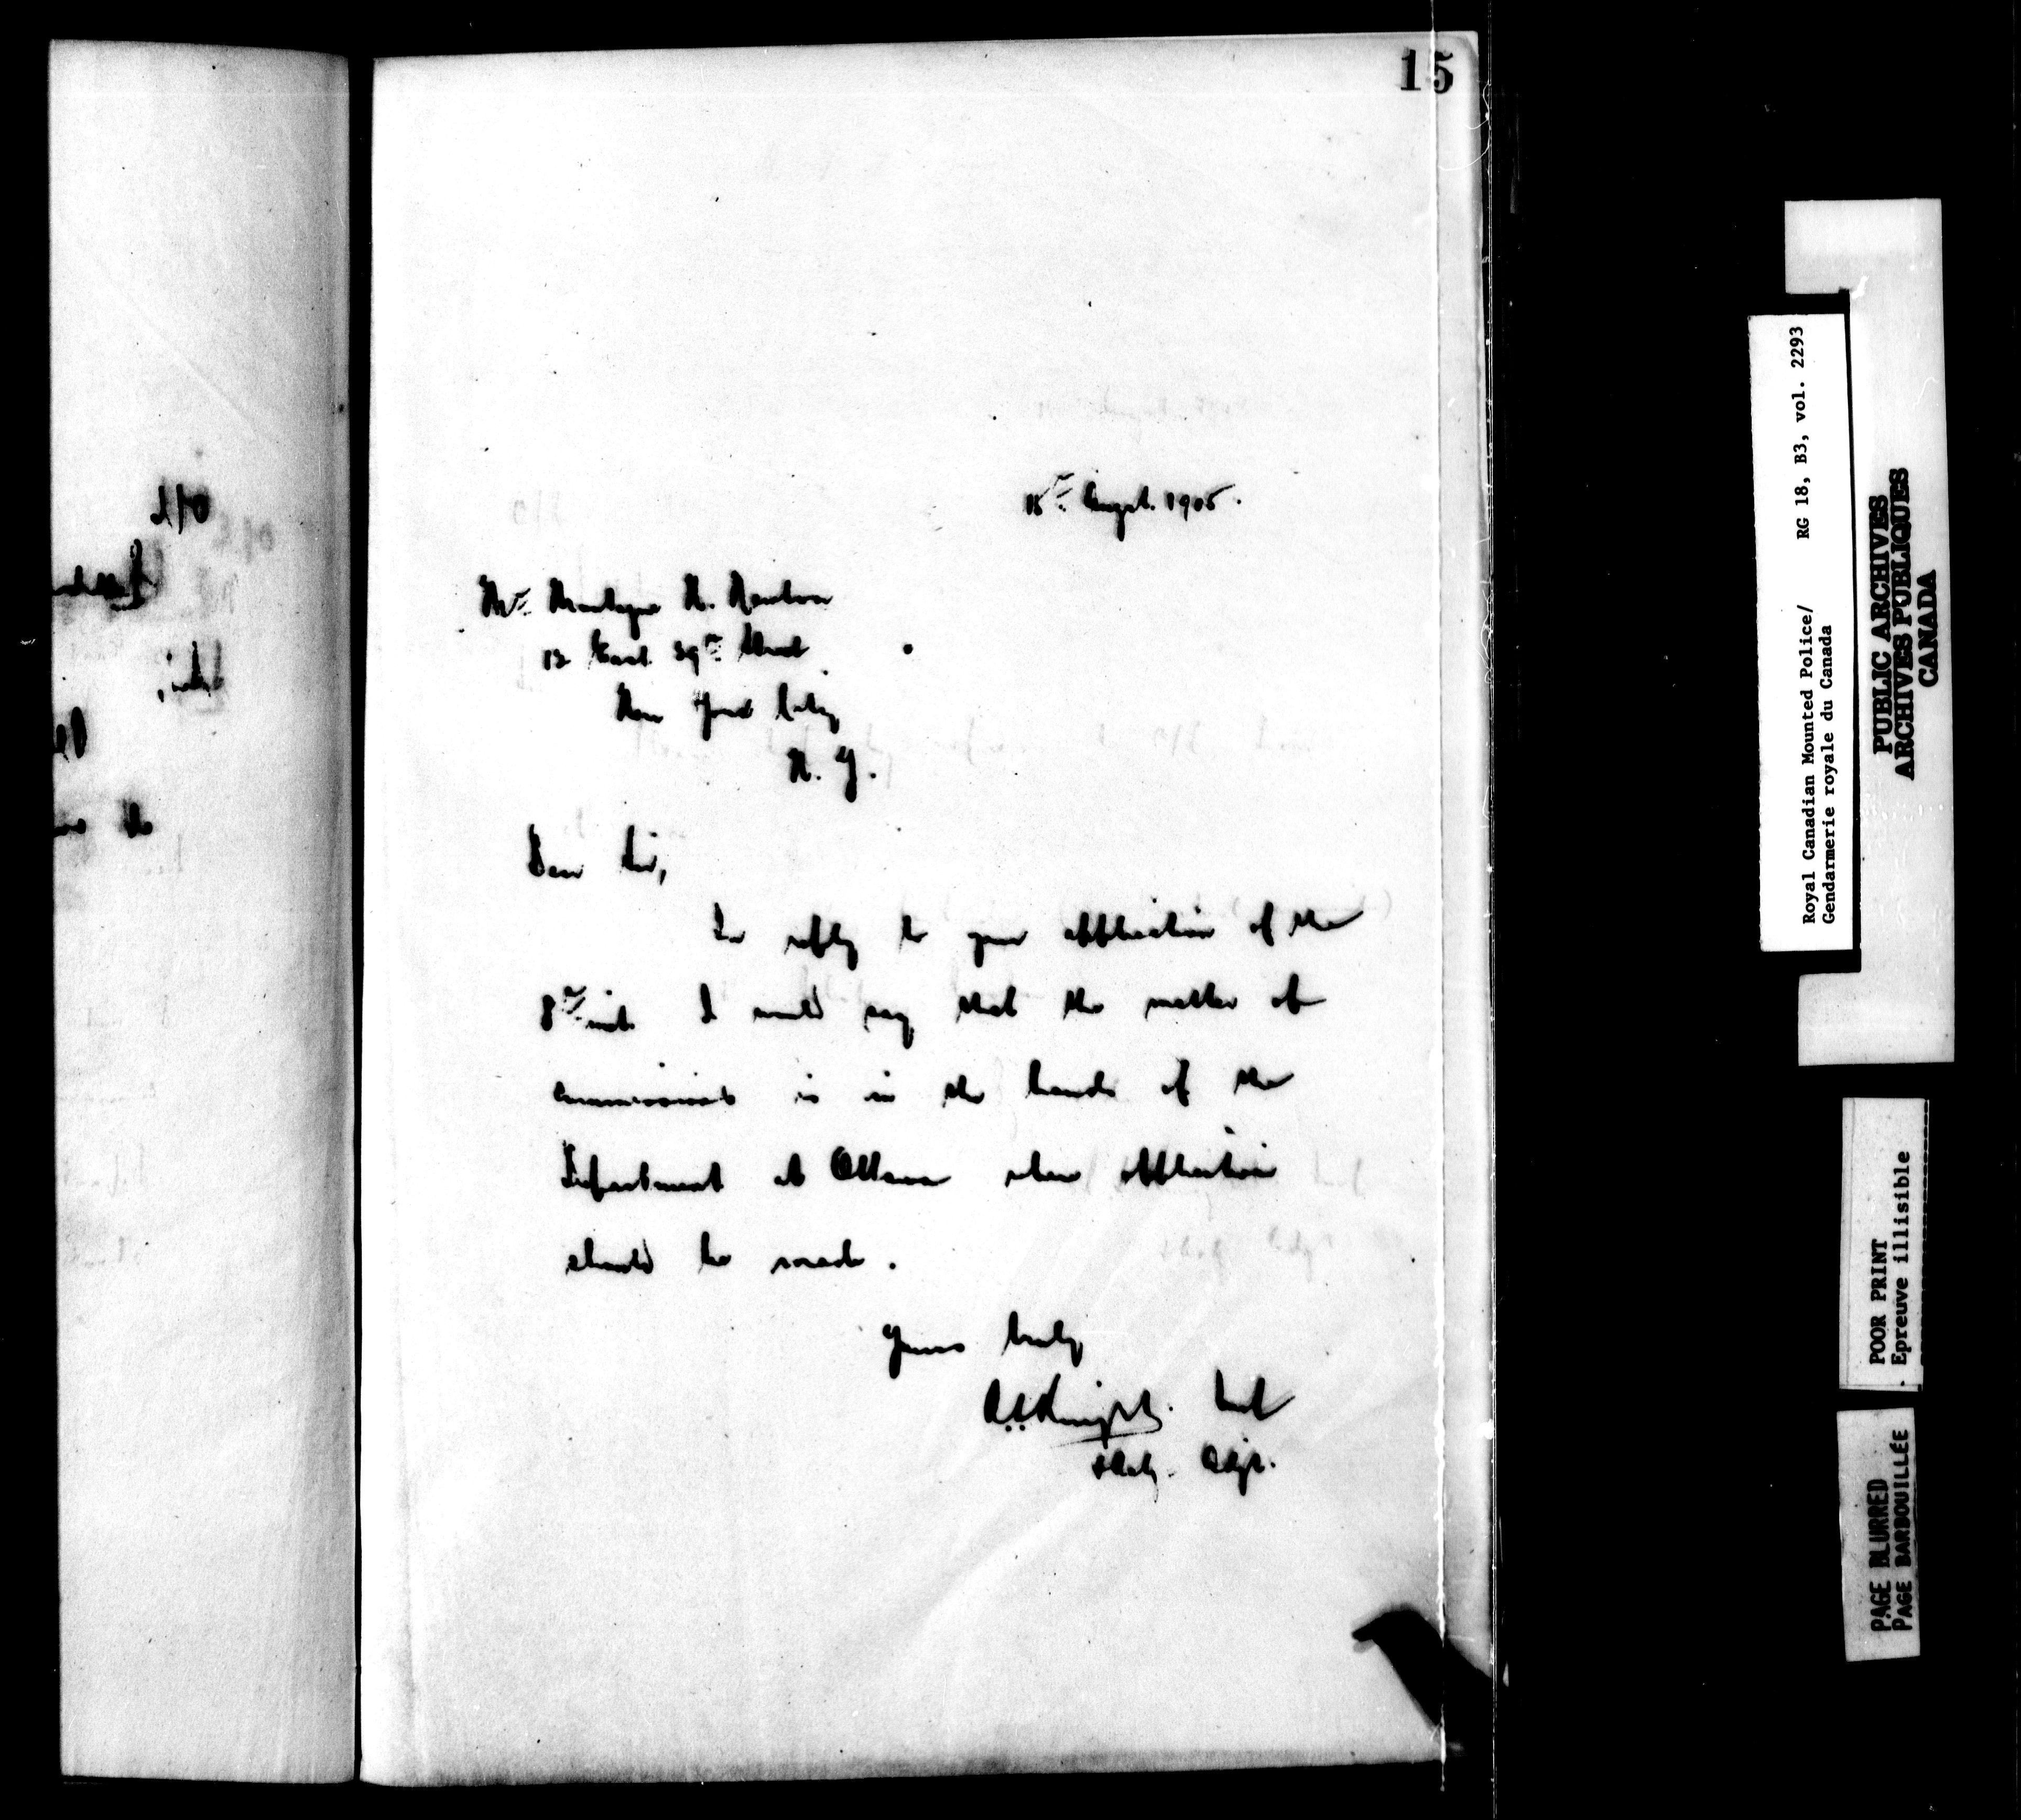 15
15th Augst. 1905.
Mr. Montague R.
12 East 39th Street
New York City
N. Y.
Dear Sir,
In reply to your application of the
8th inst. I would say that the matter of
commissions is in the hands of the
Department at Ottawa where application
should be made.
Yours truly
Knight. Inst
Adjt.
Royal Canadian Mounted Police/ RG 18, B3, vol. 2293
Gendarmerie royale du Canada
PUBLIC ARCHIVES
ARCHIVES PUBLIQUES
CANADA
POOR PRINT
Epreuve illisible
PAGE BLURRED
PAGE BARBOUILLÉE